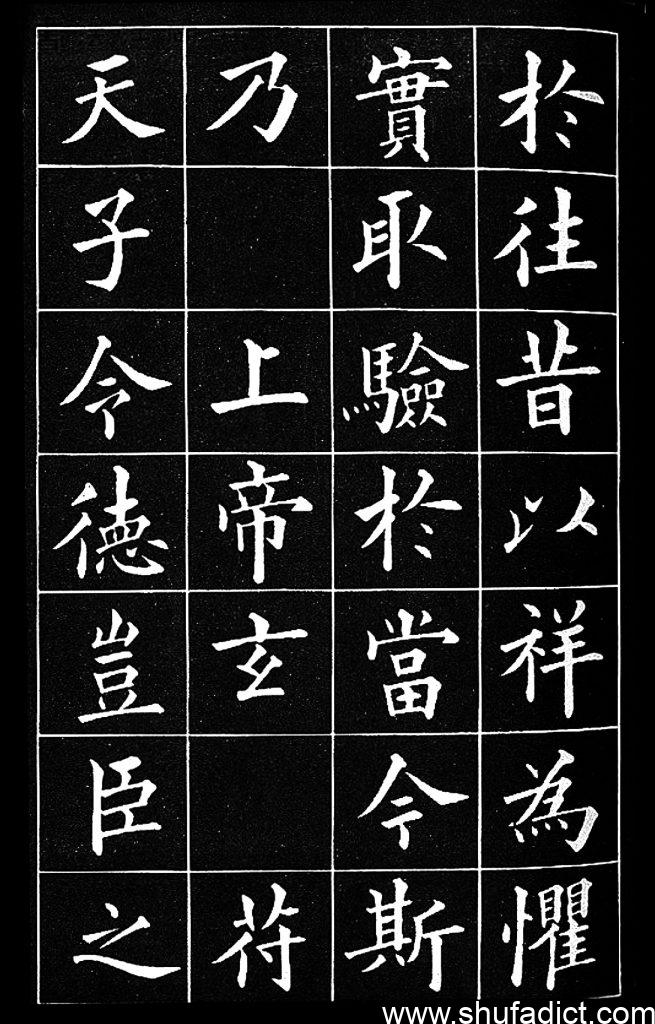 於往昔以祥為懼
實取驗於當今斯
乃上帝玄苻
天子令德豈臣之
www.shufadict.com